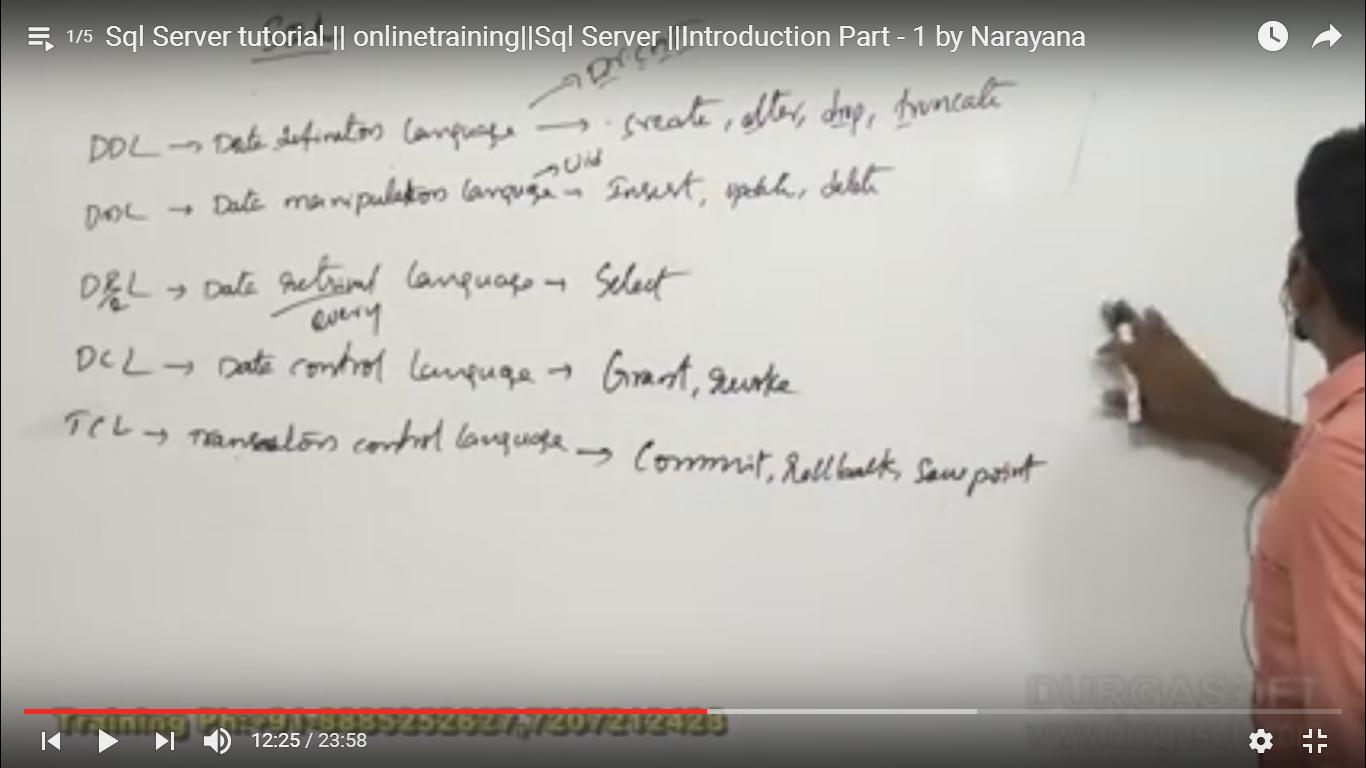 1/5 Sql Server tutorial || onlinetraining||Sql Server ||Introduction Part - 1 by Narayana
DDL → Data Definition Language → create, alter, drop, truncate
Uid
DML → Data manipulation Language → Insert, update, delete
DRL → Data Retrival Language → Select
Q
Query
DCL → Data control Language → Grant, Revoke
TCL → Transaction control Language → Commit, Rollback, Savepoint
DURGASOFT
Training Ph:+91-8885252627,7207212428
12:25 / 23:58